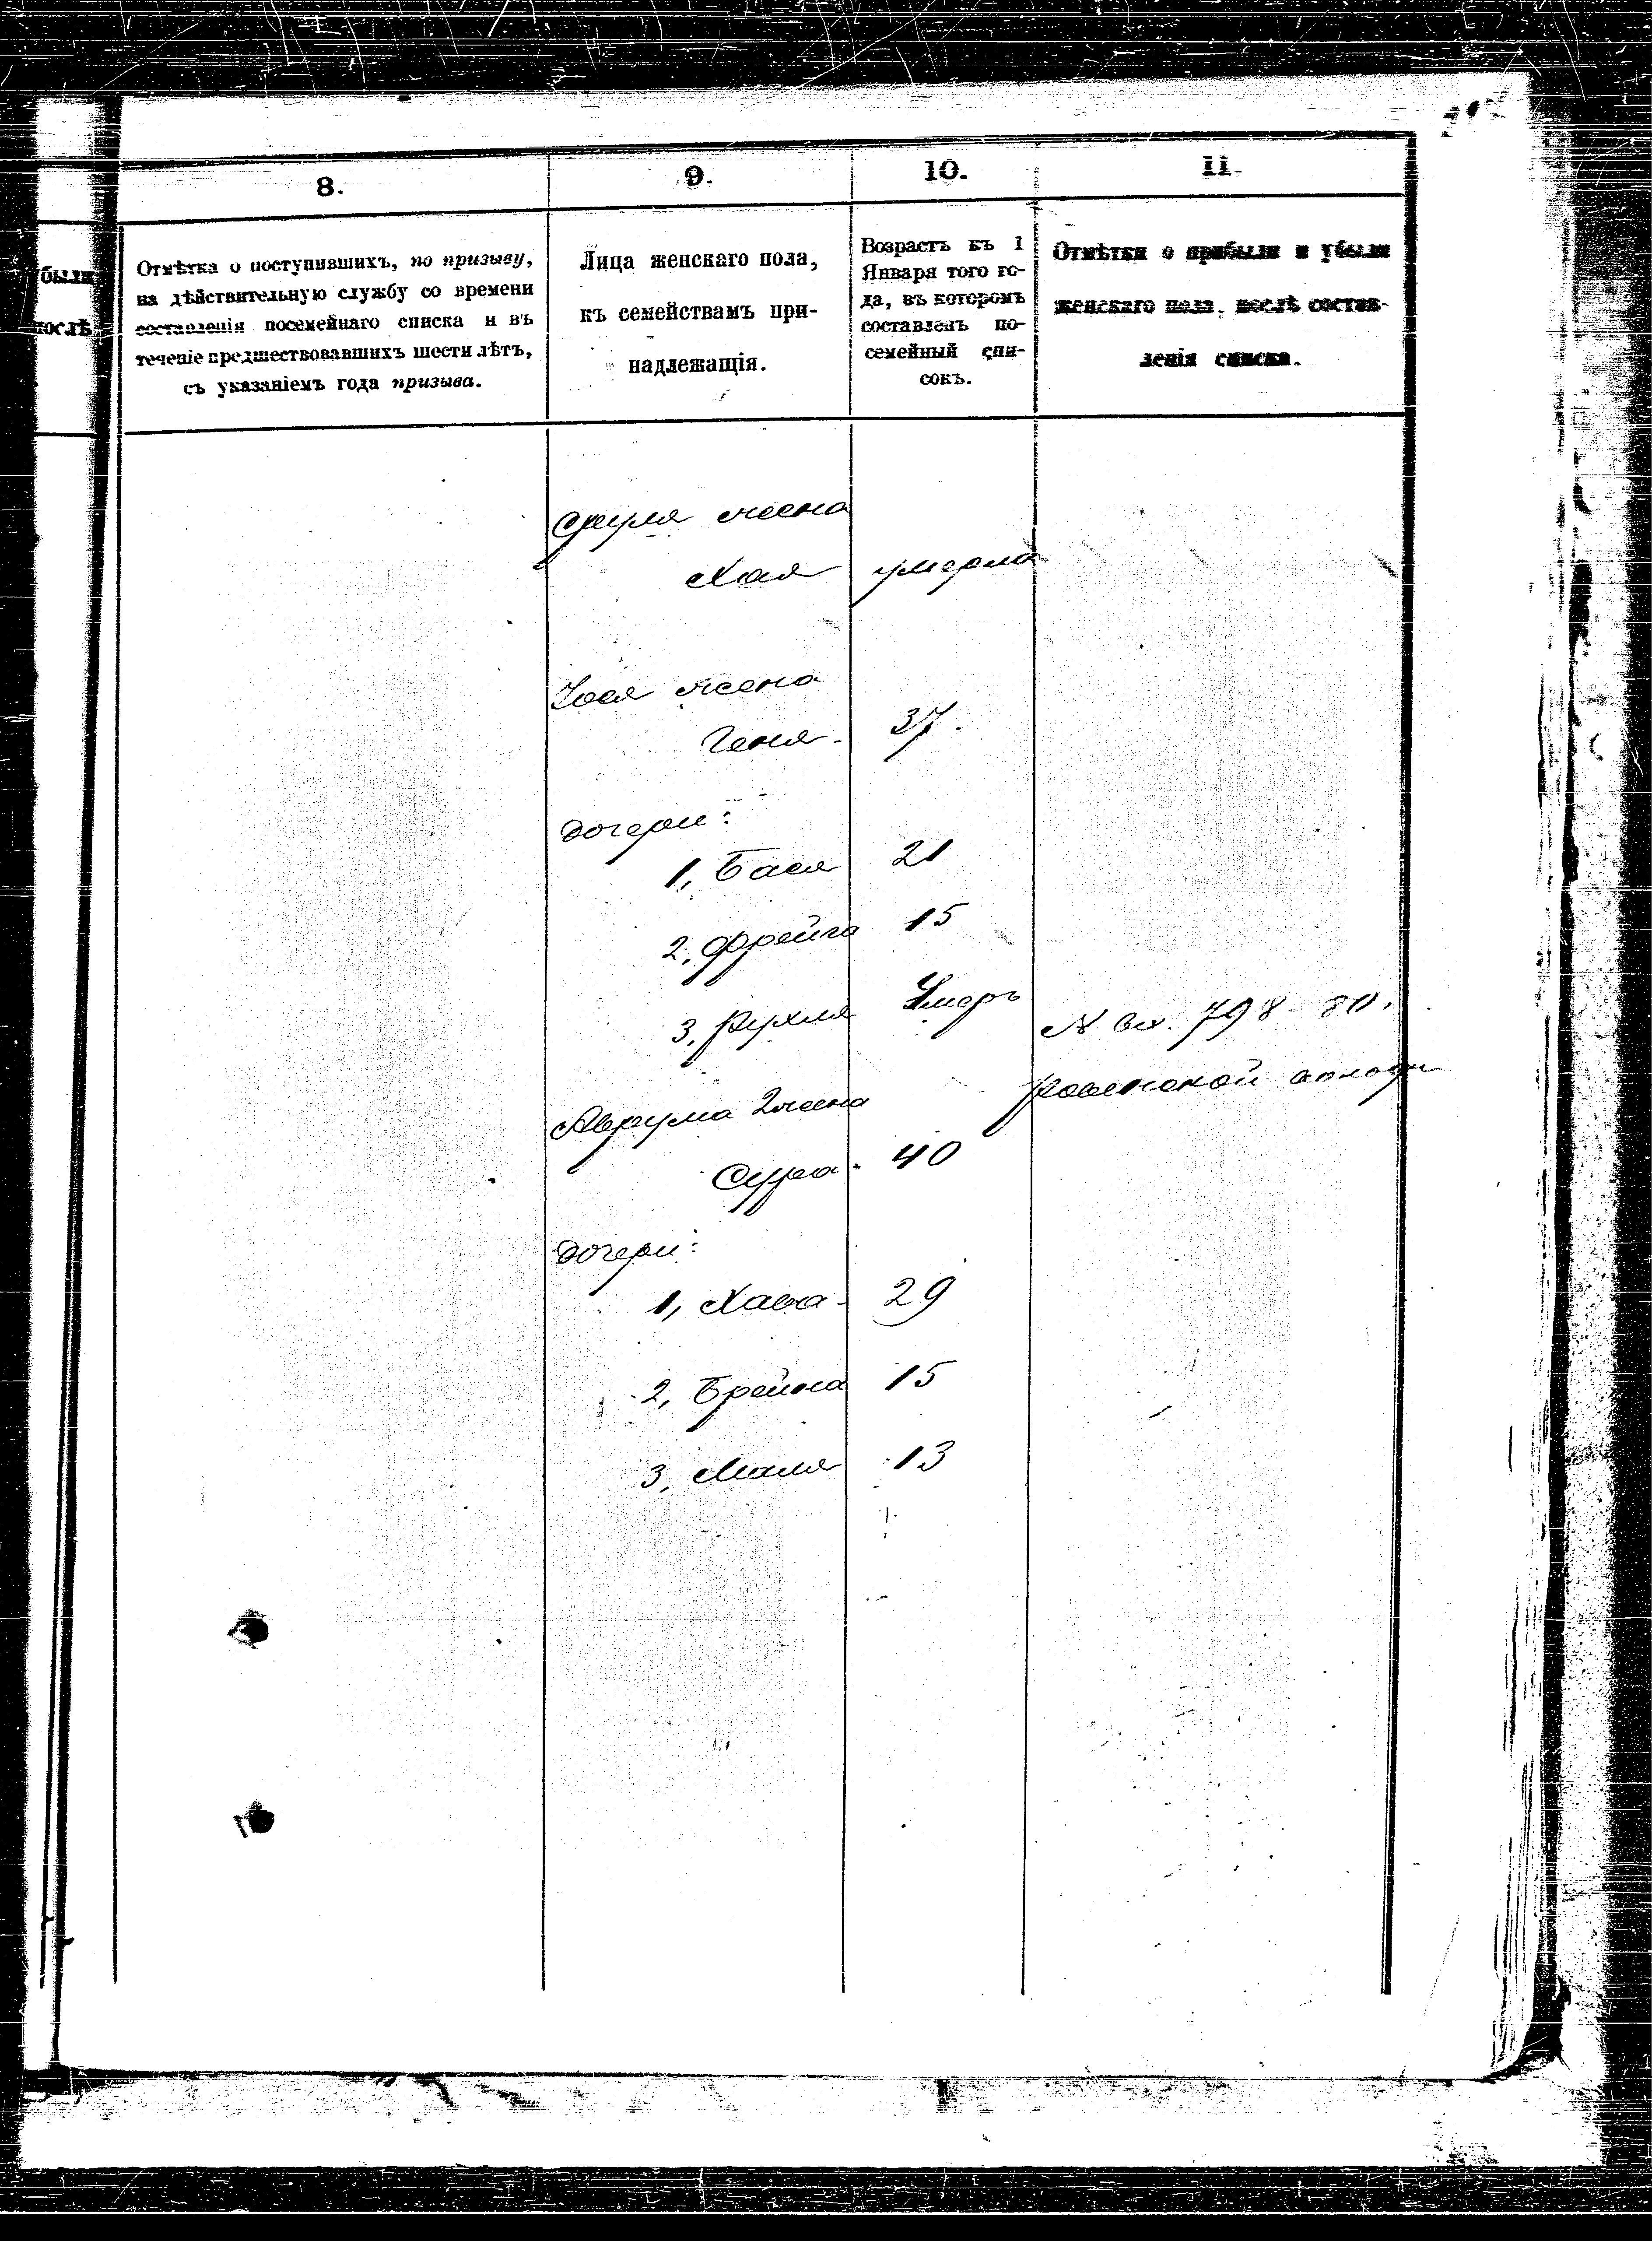 8.
9.
10.
11.
были
послѣ
Отмѣтка о поступившихъ, по призыву,
на дѣйствительную службу со времени
составленія посемейнаго списка и въ
теченіе предшествовавшихъ шести лѣтъ,
съ указаніемъ года призыва.
Лица женскаго пола,
къ семействамъ при-
надлежащія.
Возрастъ къ 1
Января того го-
да, въ которомъ
составленъ по-
семейный спи-
сокъ.
Отмѣтки о прибыли и убыли
женскаго пола, послѣ состав-
ленія списка.
Сруля жена
Хая умерла
жена
Геня 37.
Дочери:
1, Бася 21
2, Фрейга 15
3, Рухля Умеръ
№ вх. 798
Аврума 2 жена
Сура 40
Дочери:
1, Хава 29
2, Брейна 15
3, Маля 13